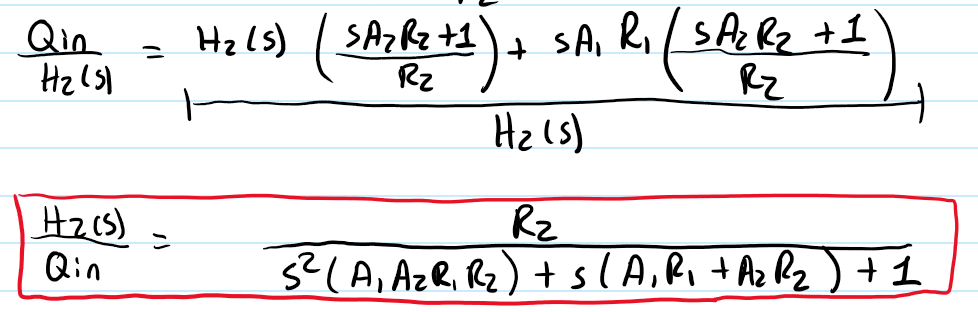 Qin/H2(s) = (H2(s) ((sA2R2+1)/R2) + sA1 R1 ((sA2R2+1)/R2))/H2(s)
H2(s)/Qin = R2/(s²(A1A2R1R2) + s(A1R1 + A2R2) + 1)